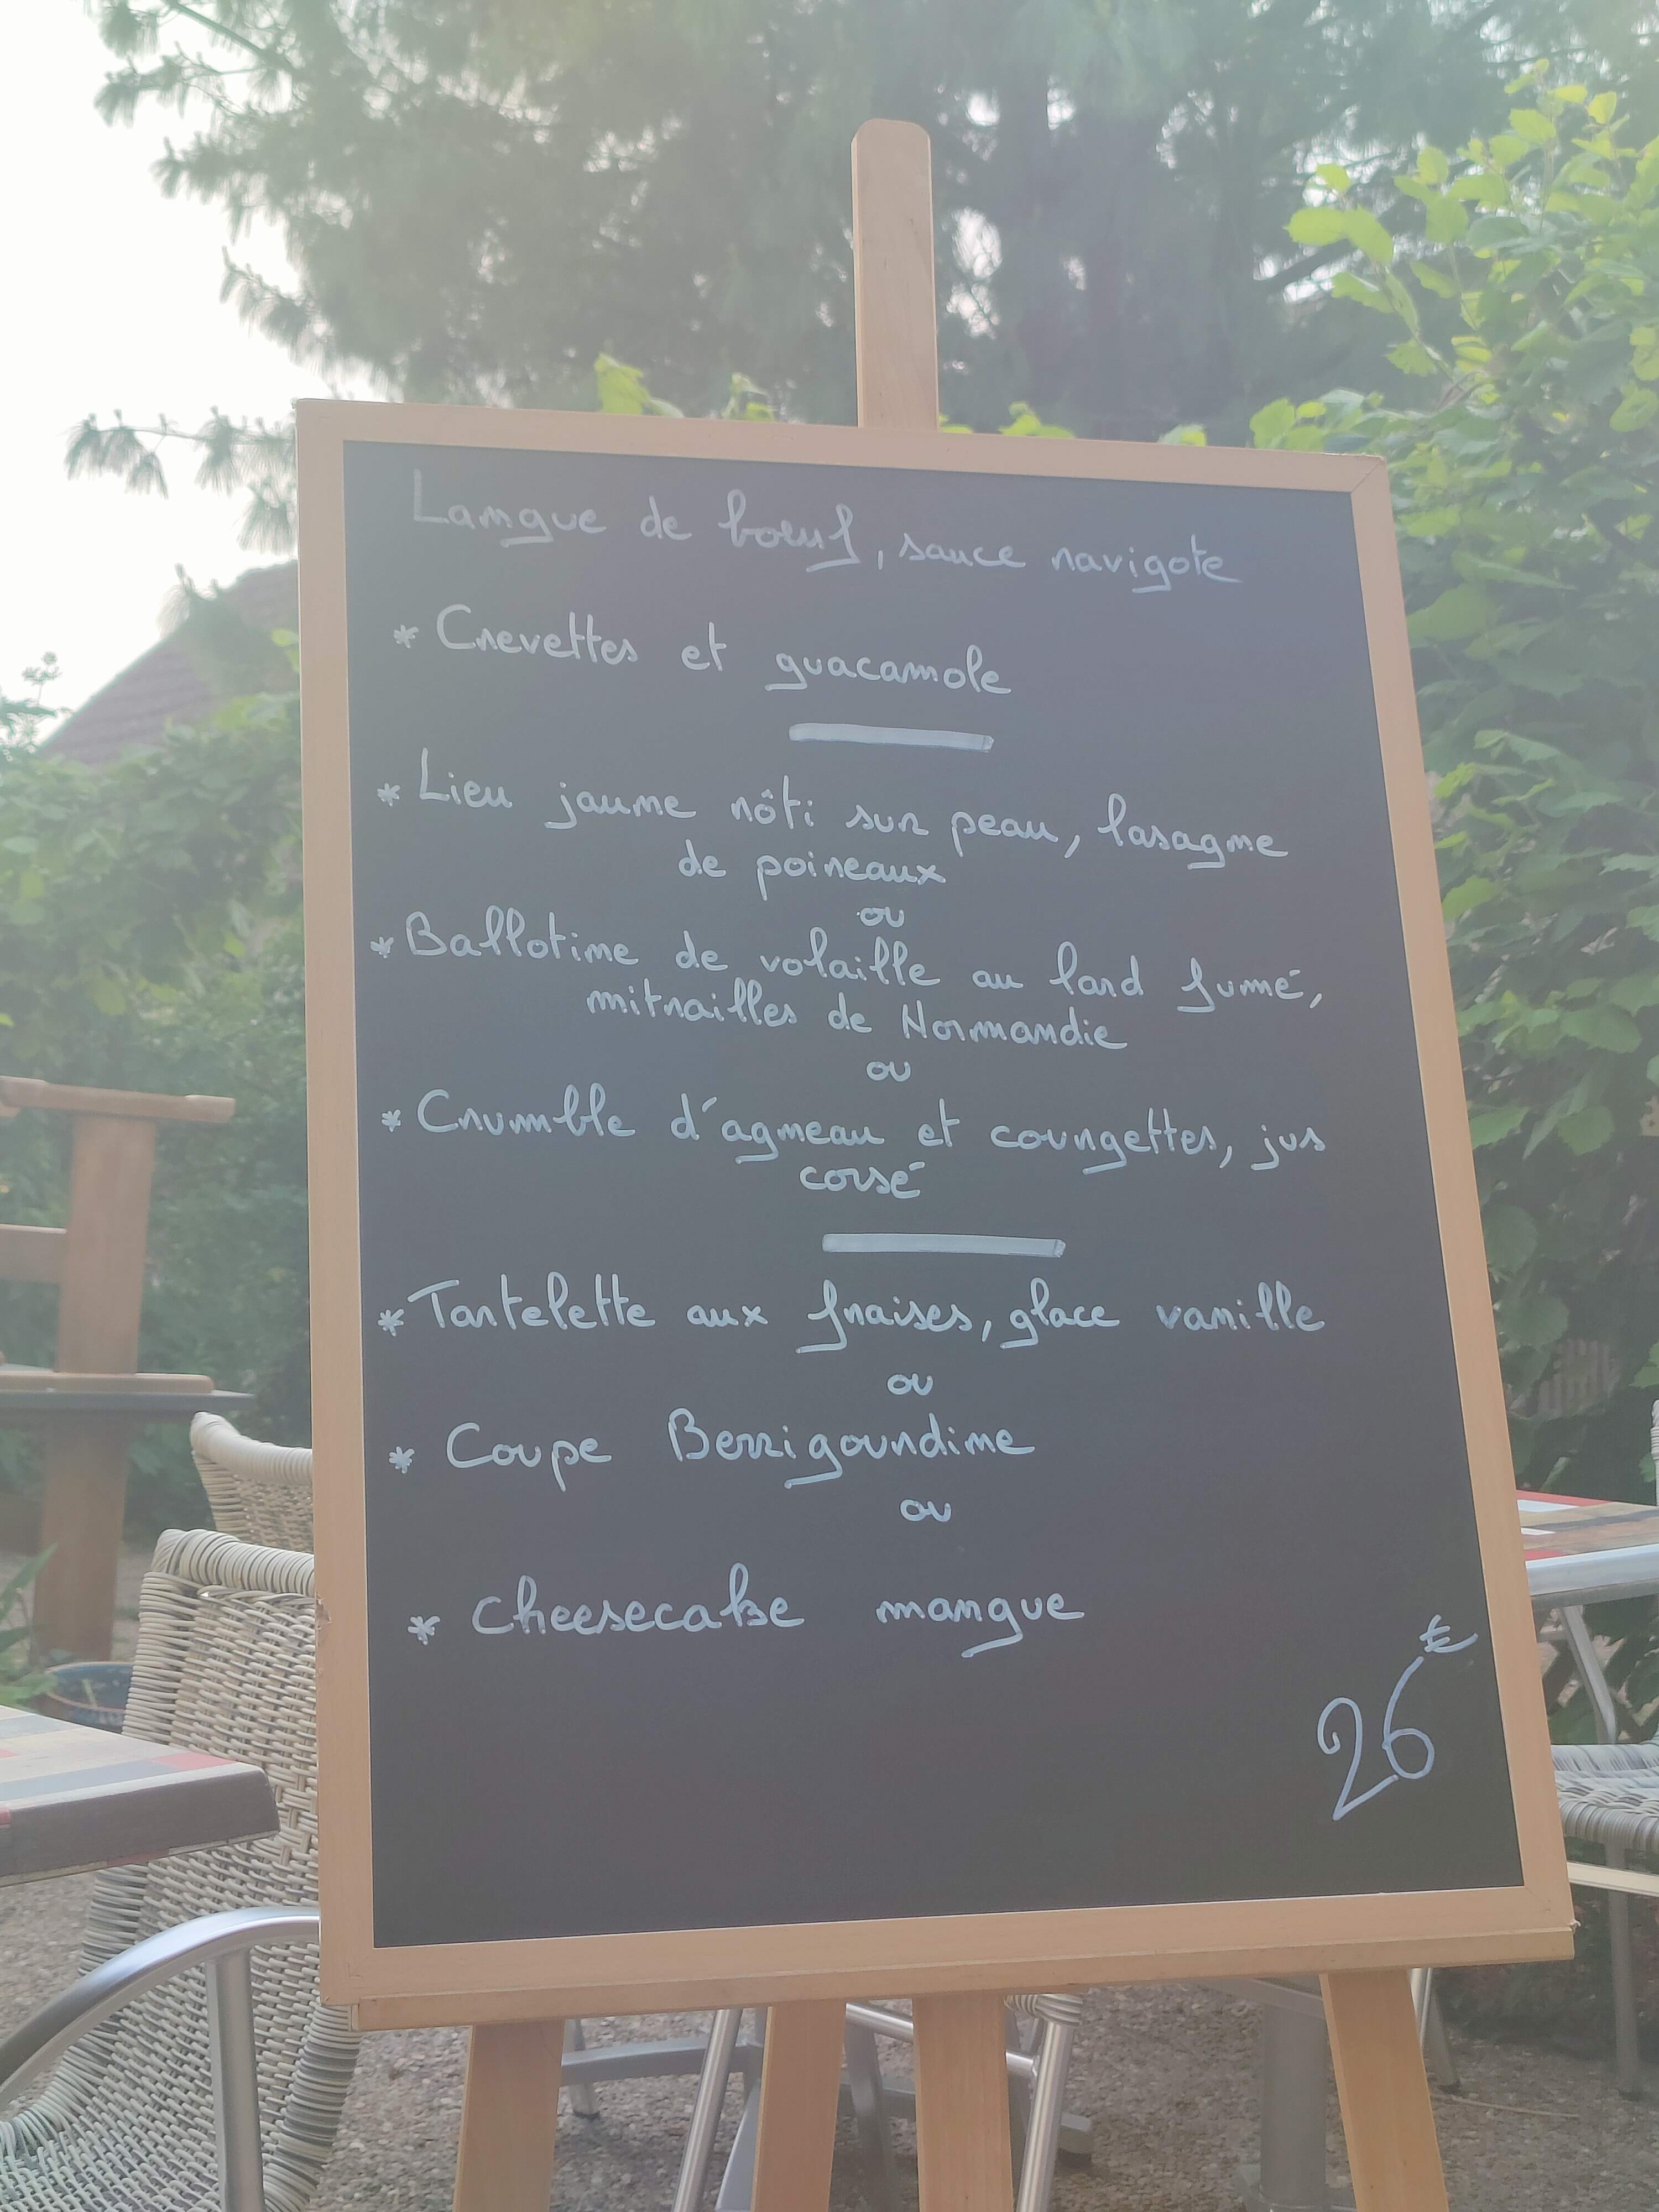 Langue de bœuf, sauce ravigote
* Crevettes et guacamole
* Lieu jaune rôti sur peau, lasagne
de poireaux
ou
* Ballotine de volaille au lard fumé,
mitrailles de Normandie
ou
* Crumble d'agneau et courgettes, jus
corsé
* Tartelette aux fraises, glace vanille
ou
* Coupe Berrigourdine
ou
* Cheesecake mangue
26€